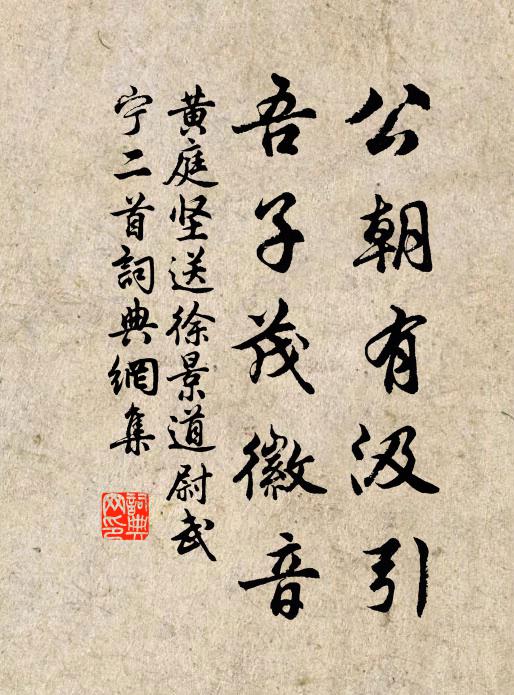 公朝有汲引
吾子茂徽音
黄庭坚送徐景道尉武
宁二首詞典網集
詞典网印